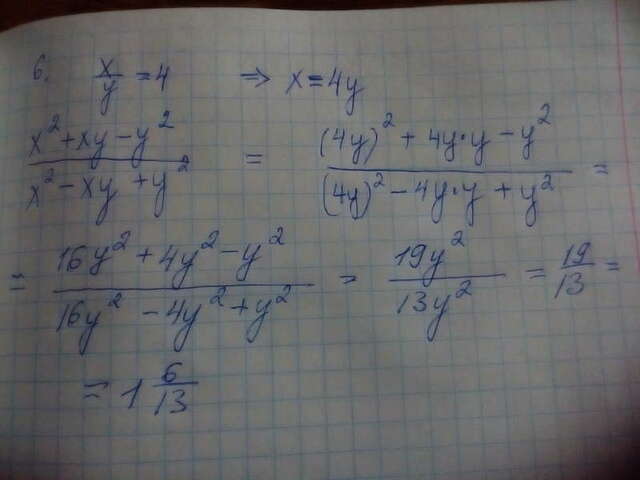 6. x/y = 4 ⇒ x = 4y
(x² + xy − y²)/(x² − xy + y²) = ((4y)² + 4y·y − y²)/((4y)² − 4y·y + y²) =
= (16y² + 4y² − y²)/(16y² − 4y² + y²) = 19y²/13y² = 19/13 =
= 1 6/13